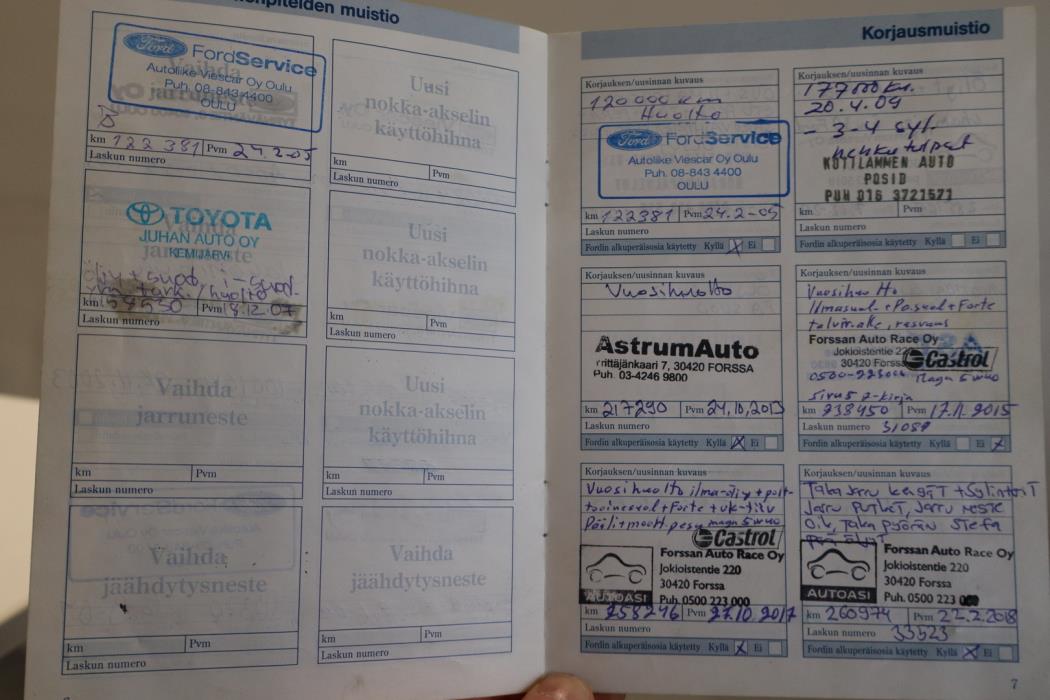 muistio
Ford
FordService
Autoliike Viescar Oy Oulu
Puh. 08-843 4400
OULU
km 122 381 Pvm 24.2-05
Laskun numero
TOYOTA
JUHAN AUTO OY
KEMIJÄRVI
Vaihda
jarruneste
km Pvm 18.12.07
Laskun numero
Vaihda
jarruneste
km Pvm
Laskun numero
Vaihda
jäähdytysneste
km Pvm
Laskun numero
Uusi
nokka-akselin
käyttöhihna
km Pvm
Laskun numero
Uusi
nokka-akselin
käyttöhihna
km Pvm
Laskun numero
Uusi
nokka-akselin
käyttöhihna
km Pvm
Laskun numero
Vaihda
jäähdytysneste
km Pvm
Laskun numero
Korjausmuistio
Korjauksen/uusinnan kuvaus
120 000 km
Huolto
Ford
FordService
Autoliike Viescar Oy Oulu
Puh. 08-843 4400
OULU
km 122381 Pvm 24.2-05
Laskun numero
Fordin alkuperäisosia käytetty Kyllä X Ei
Korjauksen/uusinnan kuvaus
20.4.09
- 3-4 syl.
KOTILAMMEN AUTO
POSIO
PUH 016 3721571
km Pvm
Laskun numero
Fordin alkuperäisosia käytetty Kyllä Ei
Korjauksen/uusinnan kuvaus
Vuosihuolto
AstrumAuto
Yrittäjänkaari 7, 30420 FORSSA
Puh. 03-4246 9800
km 217290 Pvm 24.10.2013
Laskun numero
Fordin alkuperäisosia käytetty Kyllä X Ei
Korjauksen/uusinnan kuvaus
Vuosihuolto
Forssan Auto Race Oy
Jokioistentie 220
30420 Forssa
Castrol
km 238450 Pvm 17.11.2015
Laskun numero 31087
Fordin alkuperäisosia käytetty Kyllä Ei X
Korjauksen/uusinnan kuvaus
Vuosihuolto ilma-öljy+polt-
Castrol
AUTOASI
Forssan Auto Race Oy
Jokioistentie 220
30420 Forssa
Puh. 0500 223 000
km 258246 Pvm 27.10.2017
Laskun numero
Fordin alkuperäisosia käytetty Kyllä X Ei
Korjauksen/uusinnan kuvaus
Taka jarru kengät + Sylinterit
Jarru putket, jarru neste
AUTOASI
Forssan Auto Race Oy
Jokioistentie 220
30420 Forssa
Puh. 0500 223
km 260974 Pvm 22.2.2018
Laskun numero 33523
Fordin alkuperäisosia käytetty Kyllä X Ei
7